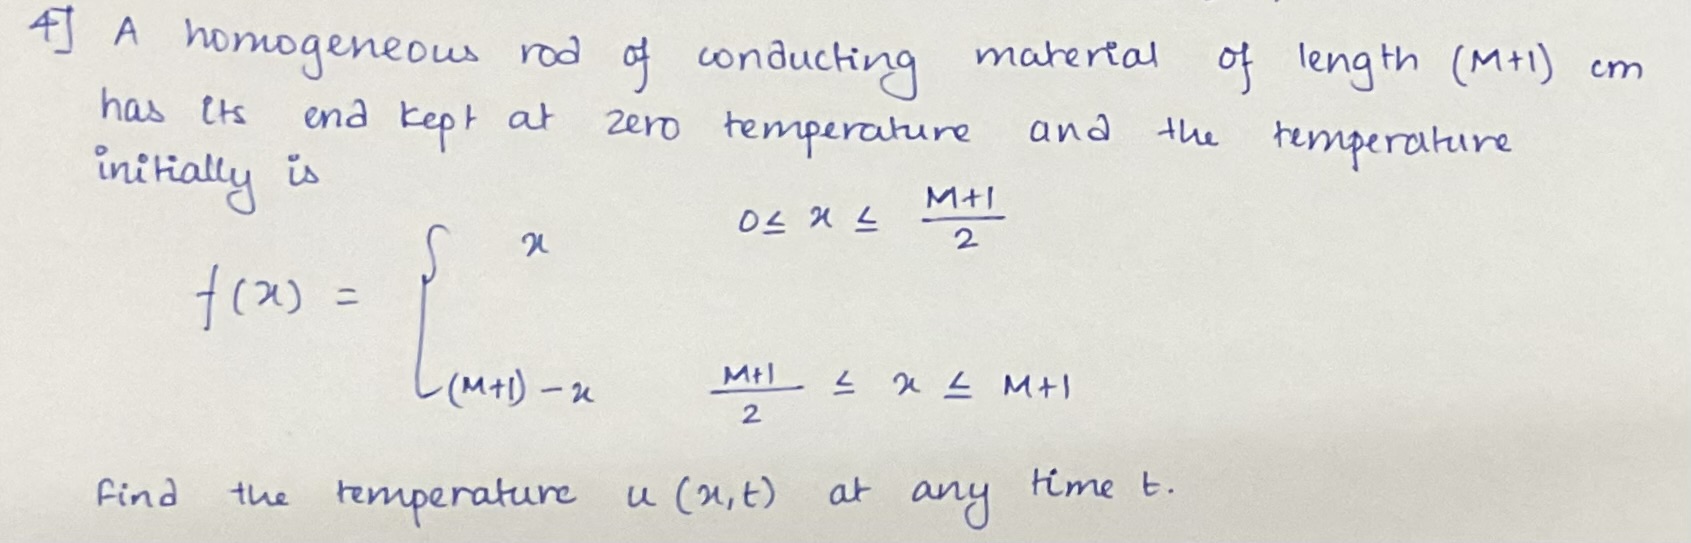 4] A homogeneous rod of conducting material of length (M+1) cm
has its end kept at zero temperature and the temperature
initially is
f(x) = { x 0 ≤ x ≤ M+1/2
(M+1) - x M+1/2 ≤ x ≤ M+1
find the temperature u (x,t) at any time t.